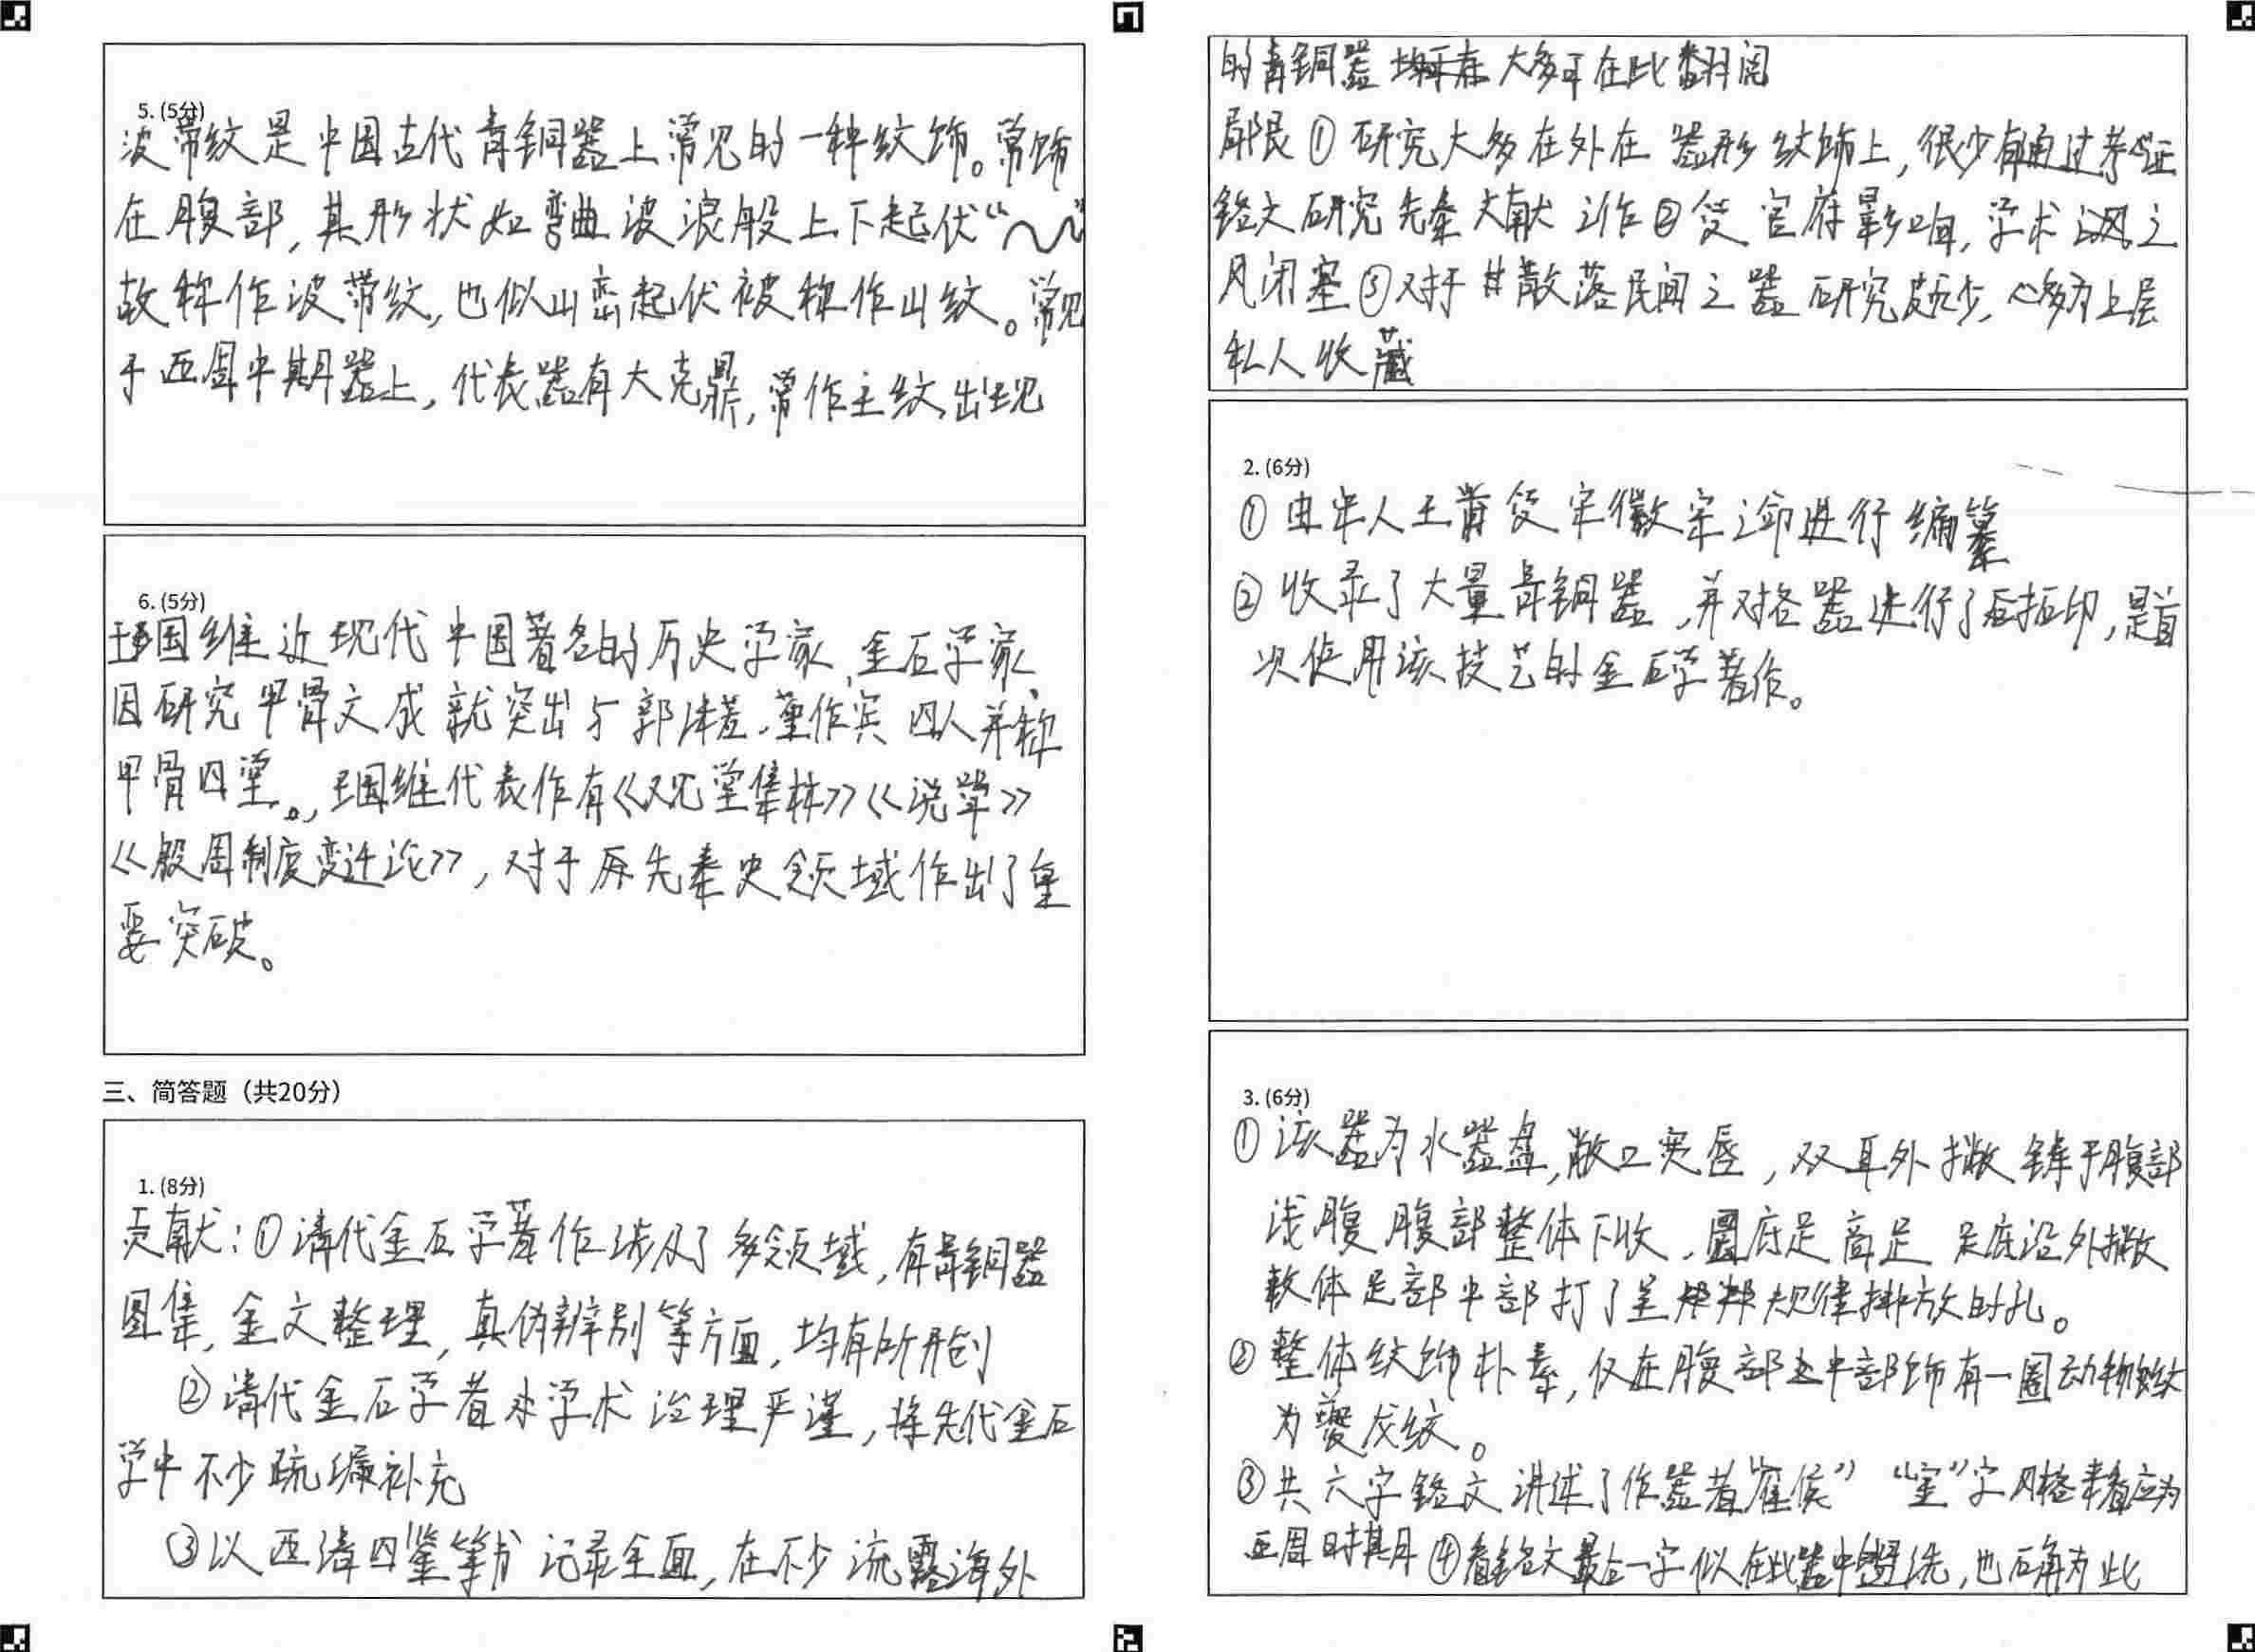 5. (5分)
波带纹是中国古代青铜器上常见的一种纹饰。常饰
在腹部，其形状如弯曲波浪般上下起伏“～”
故称作波带纹，也似山峦起伏被称作山纹。常见
于西周中期器上，代表器有大克鼎，常作主纹出现
6. (5分)
王国维近现代中国著名的历史学家、金石学家、
因研究甲骨文成就突出与郭沫若、董作宾四人并称
甲骨四堂。，王国维代表作有《观堂集林》《说斝》
《殷周制度变迁论》，对于先秦史领域作出了重
要突破。
三、简答题（共20分）
1. (8分)
贡献：①清代金石学著作涉及了多领域，有青铜器
图集，金文整理，真伪辨别等方面，均有所开创
②清代金石学者学术治理严谨，将先代金石
学中不少疏漏补充
③以西清四鉴等为记录全面，在不少流露海外
的青铜器 大多可在此翻阅
局限①研究大多在外在器形纹饰上，很少有通过考证
铭文研究先秦文献 ②受官府影响，学术之
风闭塞③对于散落民间之器研究颇少，多为上层
私人收藏
2. (6分)
①由宋人王黼受宋徽宗命进行编纂
②收录了大量青铜器，并对各器进行了拓印，是首
次使用该技艺的金石学著作。
3. (6分)
①该器为水器盘，敞口宽唇，双耳外撇铸于腹部
浅腹 腹部整体下收，圈底足高足 足底沿外撇
整体足部中部打了呈规律排放的孔。
②整体纹饰朴素，仅在腹部中部饰有一圈动物纹
为夔龙纹。
③共六字铭文讲述了作器者“侯”“宝”字风格来看应为
西周时期④看铭文最后一字似在此器中盥洗，也确为此